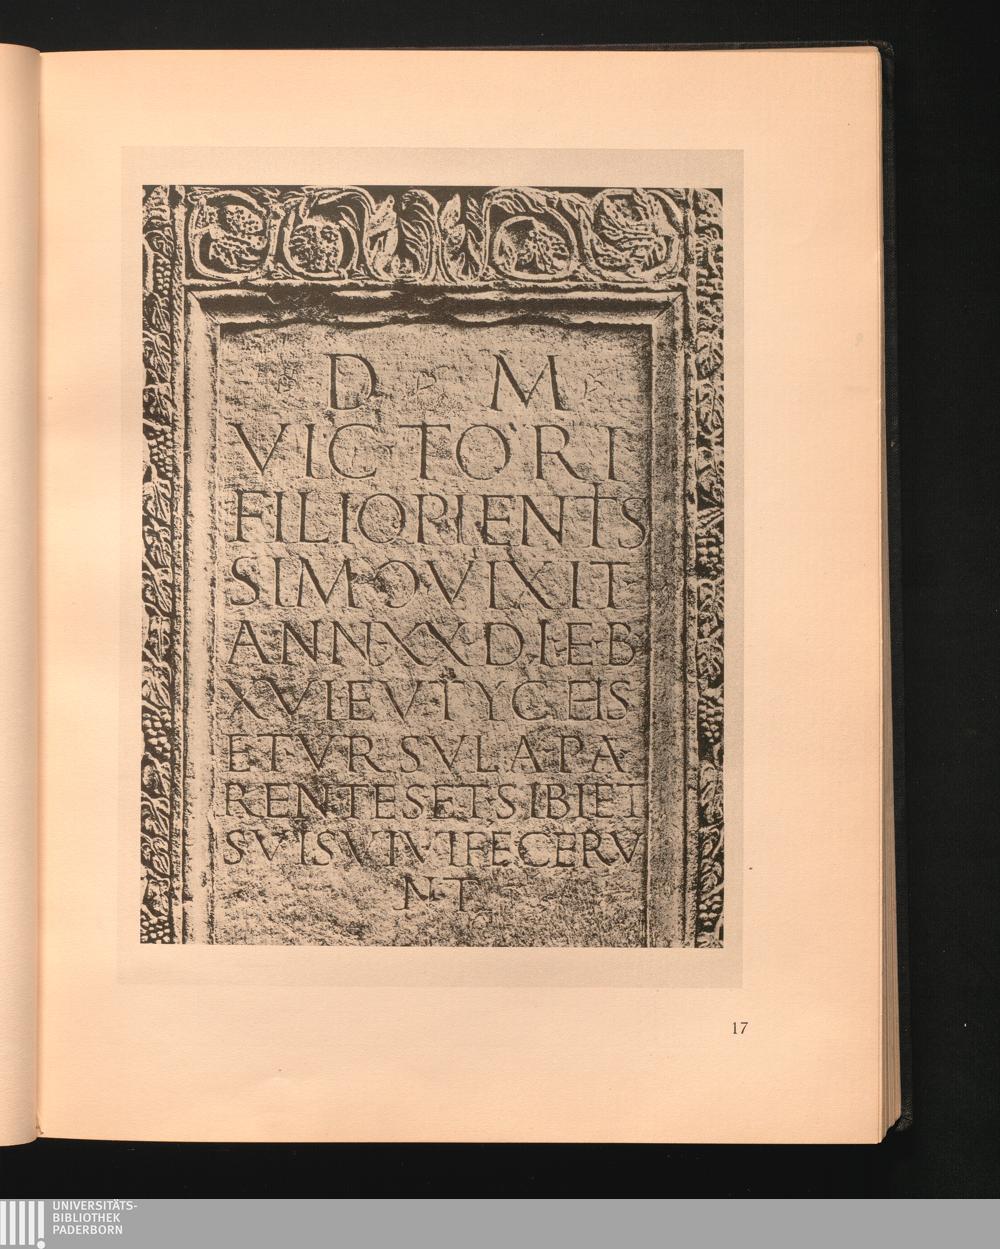 D M
VICTORI
FILIO PIENTS
SIMO VIXIT
ANN XX DIEB
XVI EVTYCHS
ET VRSVLA PA
RENTES ET SIBI ET
SVIS VIVI FECERV
NT
17
UNIVERSITÄTS-
BIBLIOTHEK
PADERBORN